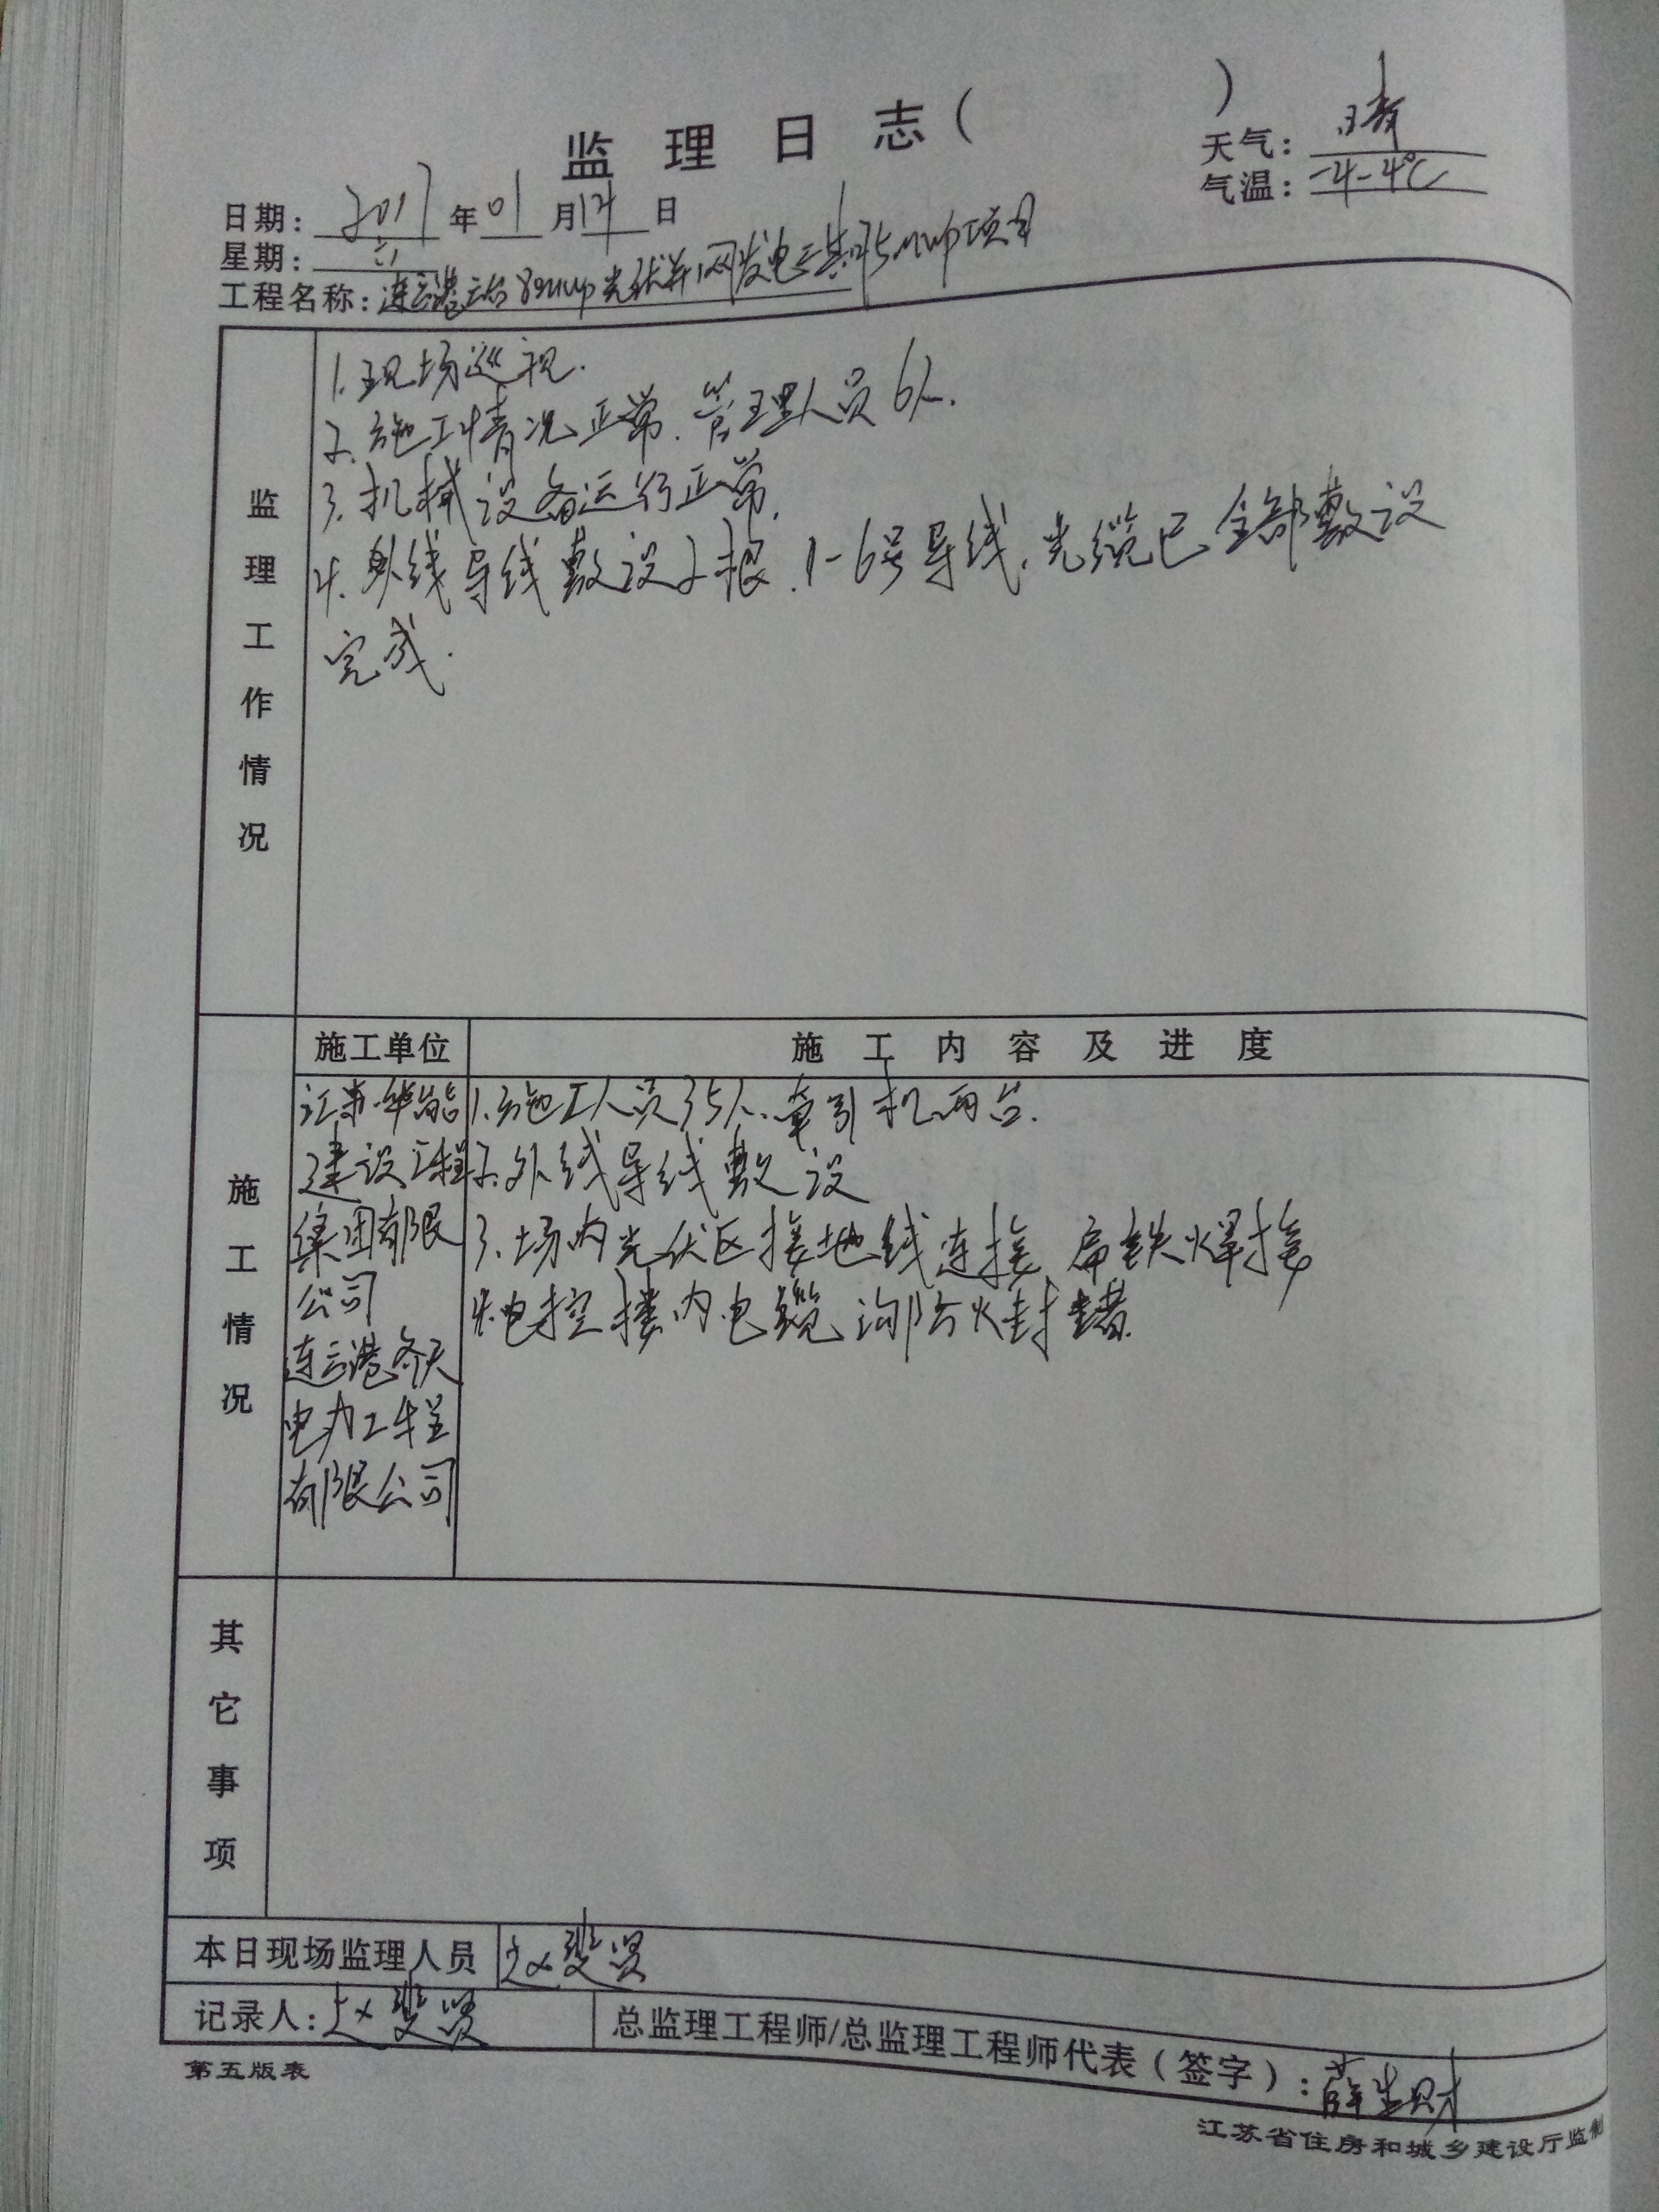 监理日志（ ）
天气：晴
气温：-4-4℃
日期：2017年01月14日
星期：六
工程名称：连云港云台8MWp光伏并网发电三期75MWp项目
监理工作情况
1.现场巡视.
2.施工情况正常.管理人员6人.
3.机械设备运行正常.
4.外线导线敷设2根.1-6号导线.光缆已全部敷设
完成.
施工情况
施工单位
施工内容及进度
江苏华能
建设工程
集团有限
公司
连云港
电力工程
有限公司
1.施工人员35人.牵引机两台.
2.外线导线敷设
3.场内光伏区接地线连接 扁铁焊接
4.电控楼内电缆沟防火封堵.
其它事项
本日现场监理人员 赵斐贤
记录人：赵斐贤
总监理工程师/总监理工程师代表（签字）：薛生财
第五版表
江苏省住房和城乡建设厅监制